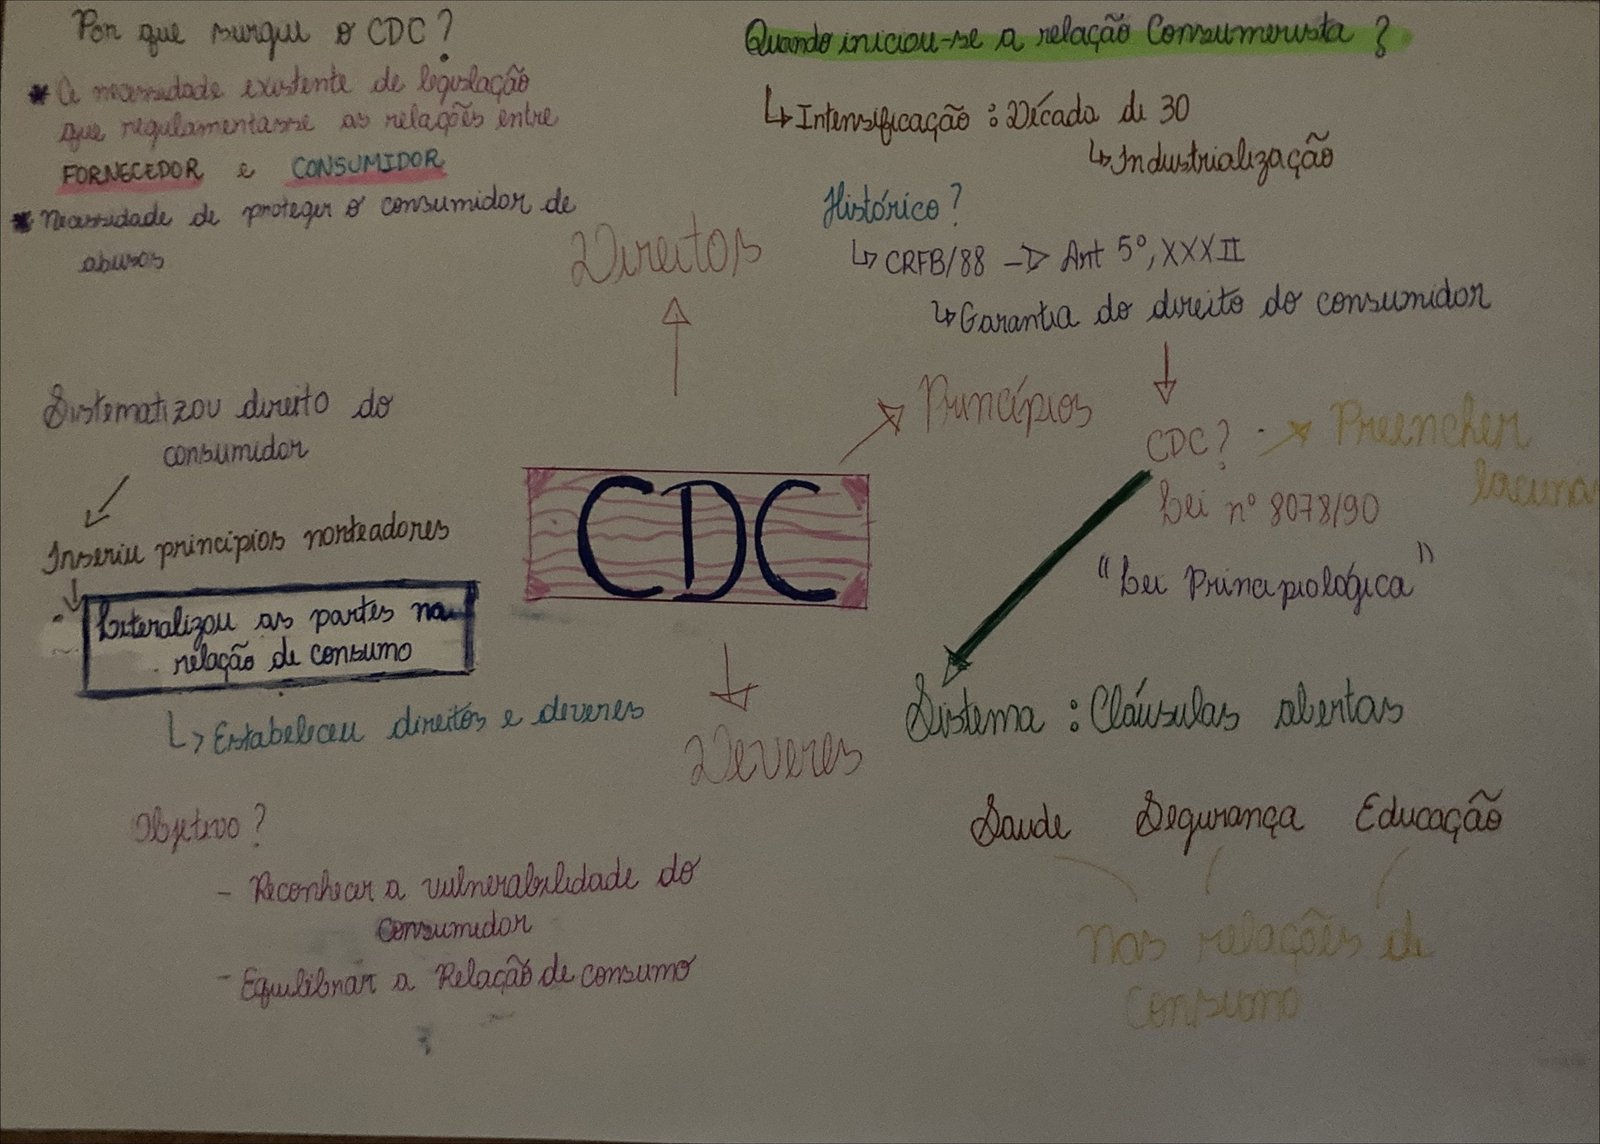 Por que surgiu o CDC?
* A necessidade existente de legislação
que regulamentasse as relações entre
FORNECEDOR e CONSUMIDOR
* Necessidade de proteger o consumidor de
abusos
Quando iniciou-se a relação Consumerista?
↳ Intensificação: Década de 30
↳ Industrialização
Histórico?
↳ CRFB/88 → Art 5º, XXXII
↳ Garantia do direito do consumidor
↓
CDC? → Preencher
lacunas
Lei nº 8078/90
"Lei Principiológica"
Sistema: Cláusulas abertas
Saude Segurança Educação
Nas relações de
Consumo
Direitos
Princípios
CDC
Deveres
Sistematizou direito do
consumidor
Inseriu princípios norteadores
Literalizou as partes na
relação de consumo
↳ Estabeleceu direitos e deveres
Objetivo?
- Reconhecer a vulnerabilidade do
Consumidor
- Equilibrar a Relação de consumo